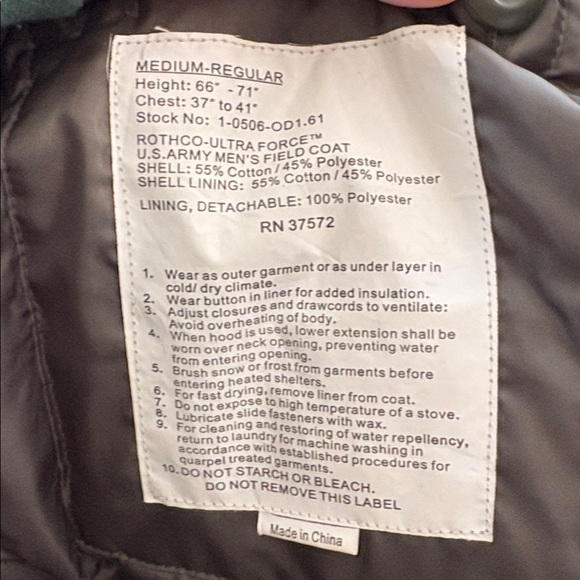 MEDIUM-REGULAR
Height: 66" - 71"
Chest: 37" to 41"
Stock No: 1-0506-OD1.61
ROTHCO-ULTRA FORCE™
U.S.ARMY MEN'S FIELD COAT
SHELL: 55% Cotton / 45% Polyester
SHELL LINING: 55% Cotton / 45% Polyester
LINING, DETACHABLE: 100% Polyester
RN 37572
1. Wear as outer garment or as under layer in
cold/ dry climate.
2. Wear button in liner for added insulation.
3. Adjust closures and drawcords to ventilate:
Avoid overheating of body.
4. When hood is used, lower extension shall be
worn over neck opening, preventing water
from entering opening.
5. Brush snow or frost from garments before
entering heated shelters.
6. For fast drying, remove liner from coat.
7. Do not expose to high temperature of a stove.
8. Lubricate slide fasteners with wax.
9. For cleaning and restoring of water repellency,
return to laundry for machine washing in
accordance with established procedures for
quarpel treated garments.
10.DO NOT STARCH OR BLEACH.
DO NOT REMOVE THIS LABEL
Made in China